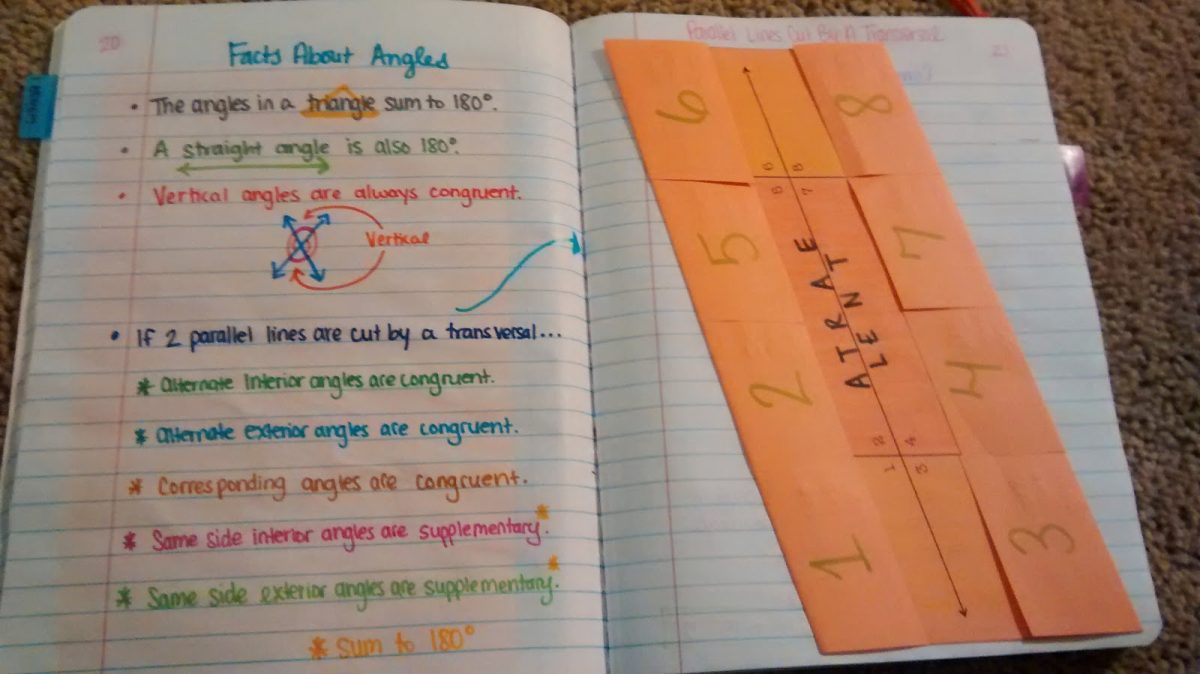 20
Facts About Angles
• The angles in a triangle sum to 180°.
• A straight angle is also 180°.
• Vertical angles are always congruent.
Vertical
• If 2 parallel lines are cut by a transversal...
* Alternate Interior angles are congruent.
* Alternate exterior angles are congruent.
* Corresponding angles are congruent.
* Same side interior angles are supplementary.*
* Same side exterior angles are supplementary.*
* Sum to 180°
Parallel Lines Cut By A Transversal
21
6
8
6 8
5 7
5
7
ALTERNATE
2
4
2 4
1 3
1
3